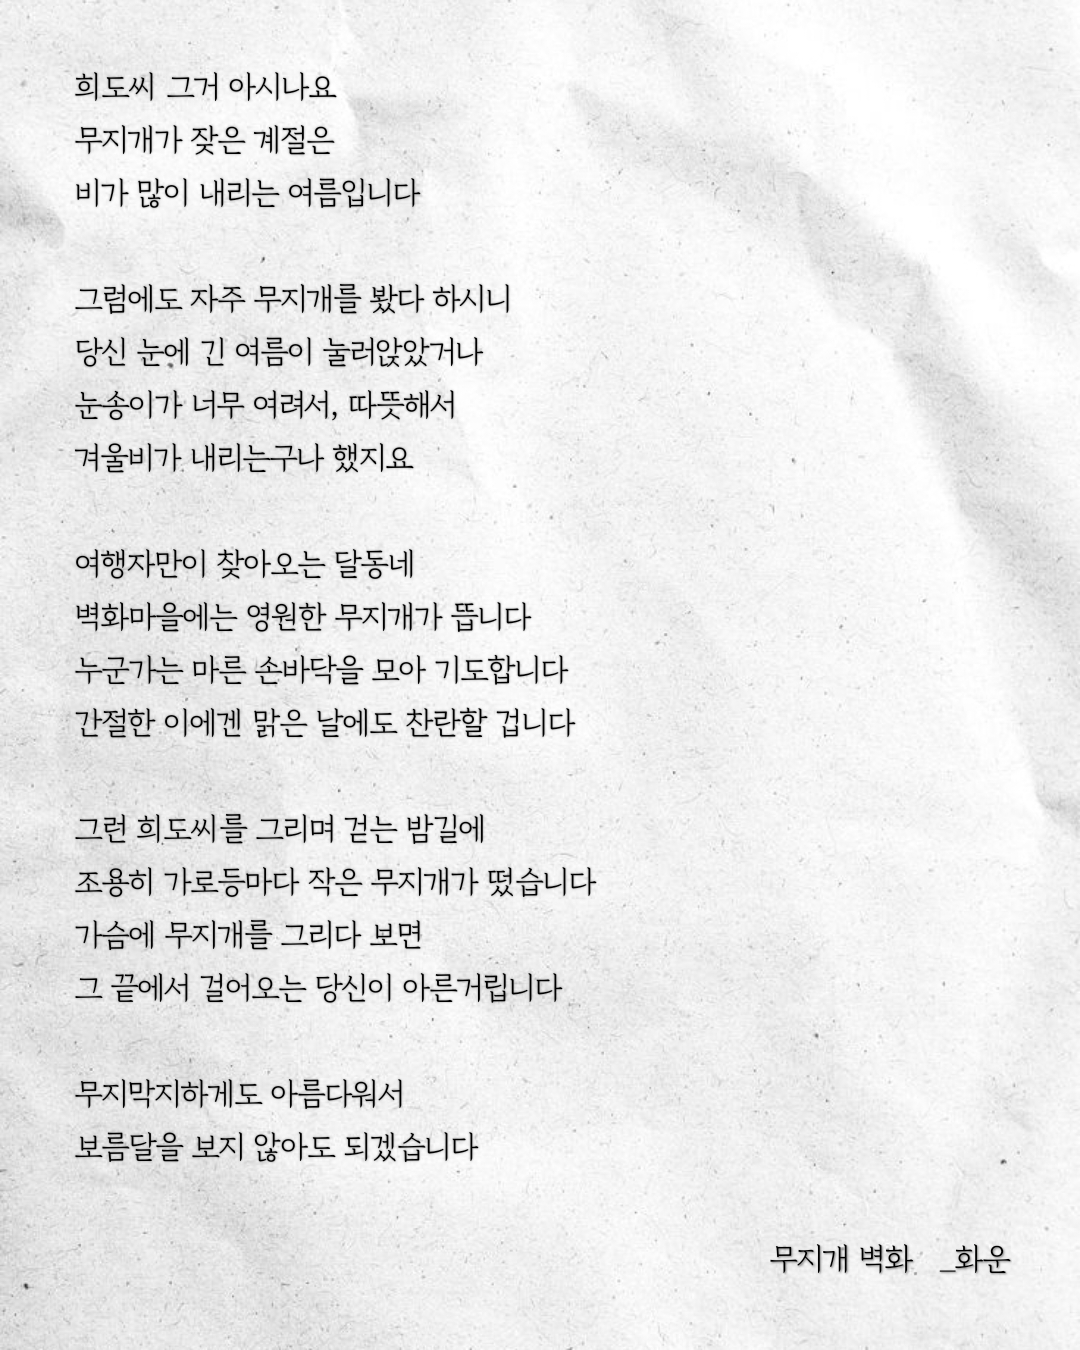 희도씨 그거 아시나요
무지개가 잦은 계절은
비가 많이 내리는 여름입니다
그럼에도 자주 무지개를 봤다 하시니
당신 눈에 긴 여름이 눌러앉았거나
눈송이가 너무 여려서, 따뜻해서
겨울비가 내리는구나 했지요
여행자만이 찾아오는 달동네
벽화마을에는 영원한 무지개가 뜹니다
누군가는 마른 손바닥을 모아 기도합니다
간절한 이에겐 맑은 날에도 찬란할 겁니다
그런 희도씨를 그리며 걷는 밤길에
조용히 가로등마다 작은 무지개가 떴습니다
가슴에 무지개를 그리다 보면
그 끝에서 걸어오는 당신이 아른거립니다
무지막지하게도 아름다워서
보름달을 보지 않아도 되겠습니다
무지개 벽화 _화운